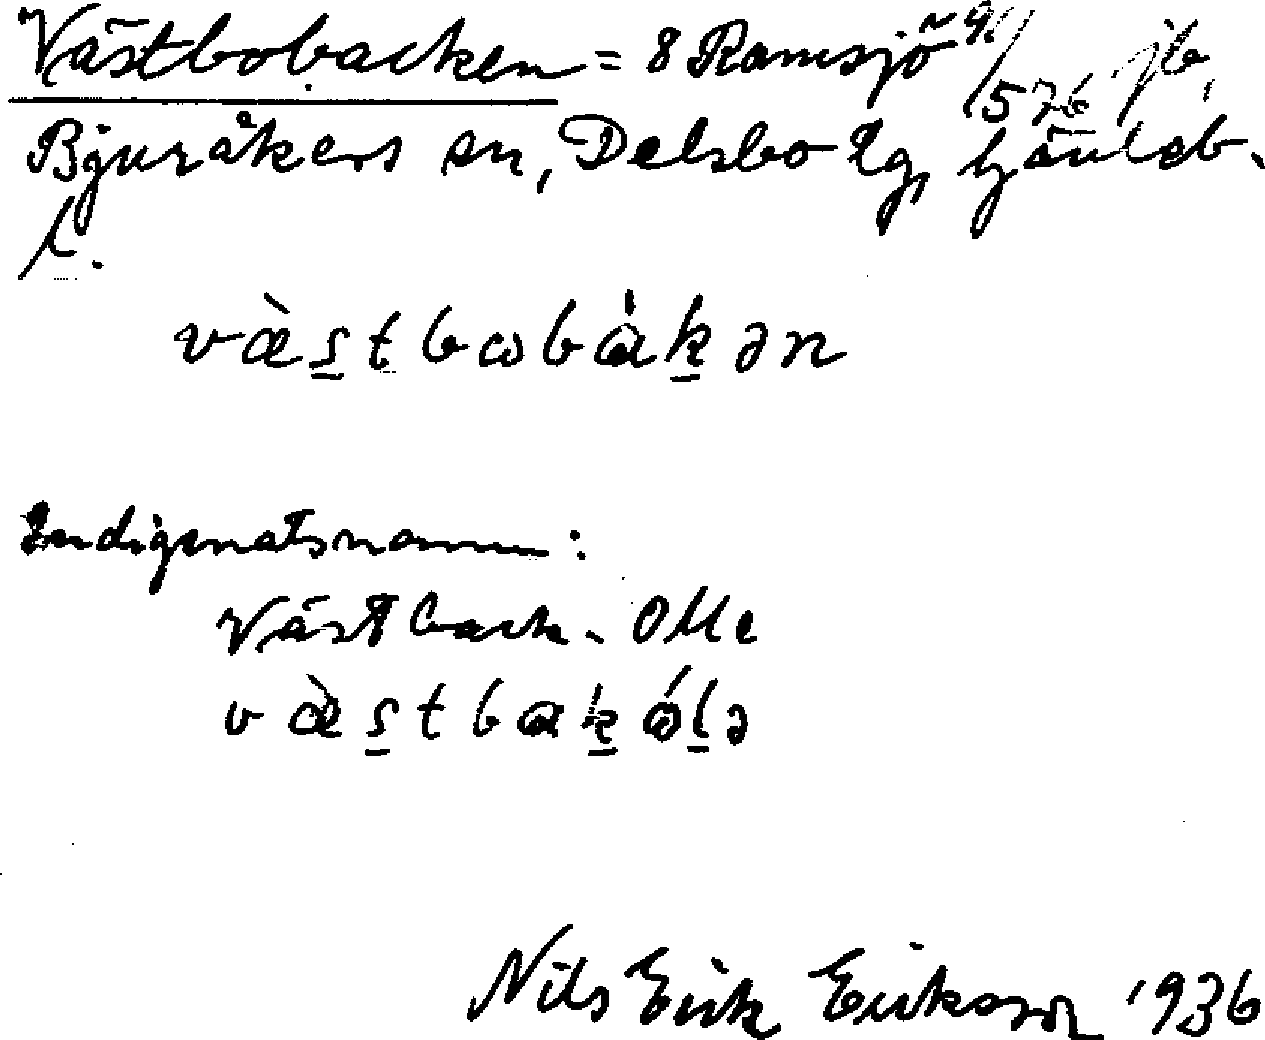 Västbobacken = 8 Ramsjö 9/576 jb,
Bjuråkers sn, Delsbo tg, Gävleb.
l.
væ̀s̲tbωbɑ̀k̲ən
Indigenatsnamn:
Västback-Olle
væ̀s̲tbɑk̲ól̲ə
Nils Erik Eriksson 1936